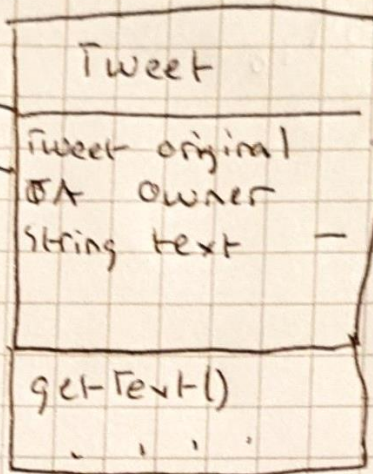 Tweet
Tweet original
A owner
String text -
getText()
. . . .